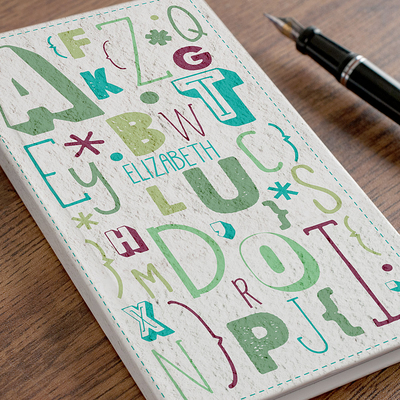 A { F { Z * Q
K G
* B W T
E y ELIZABETH C }
L U * S
* } H D , } {
M O T
X } R J { I ;
N P